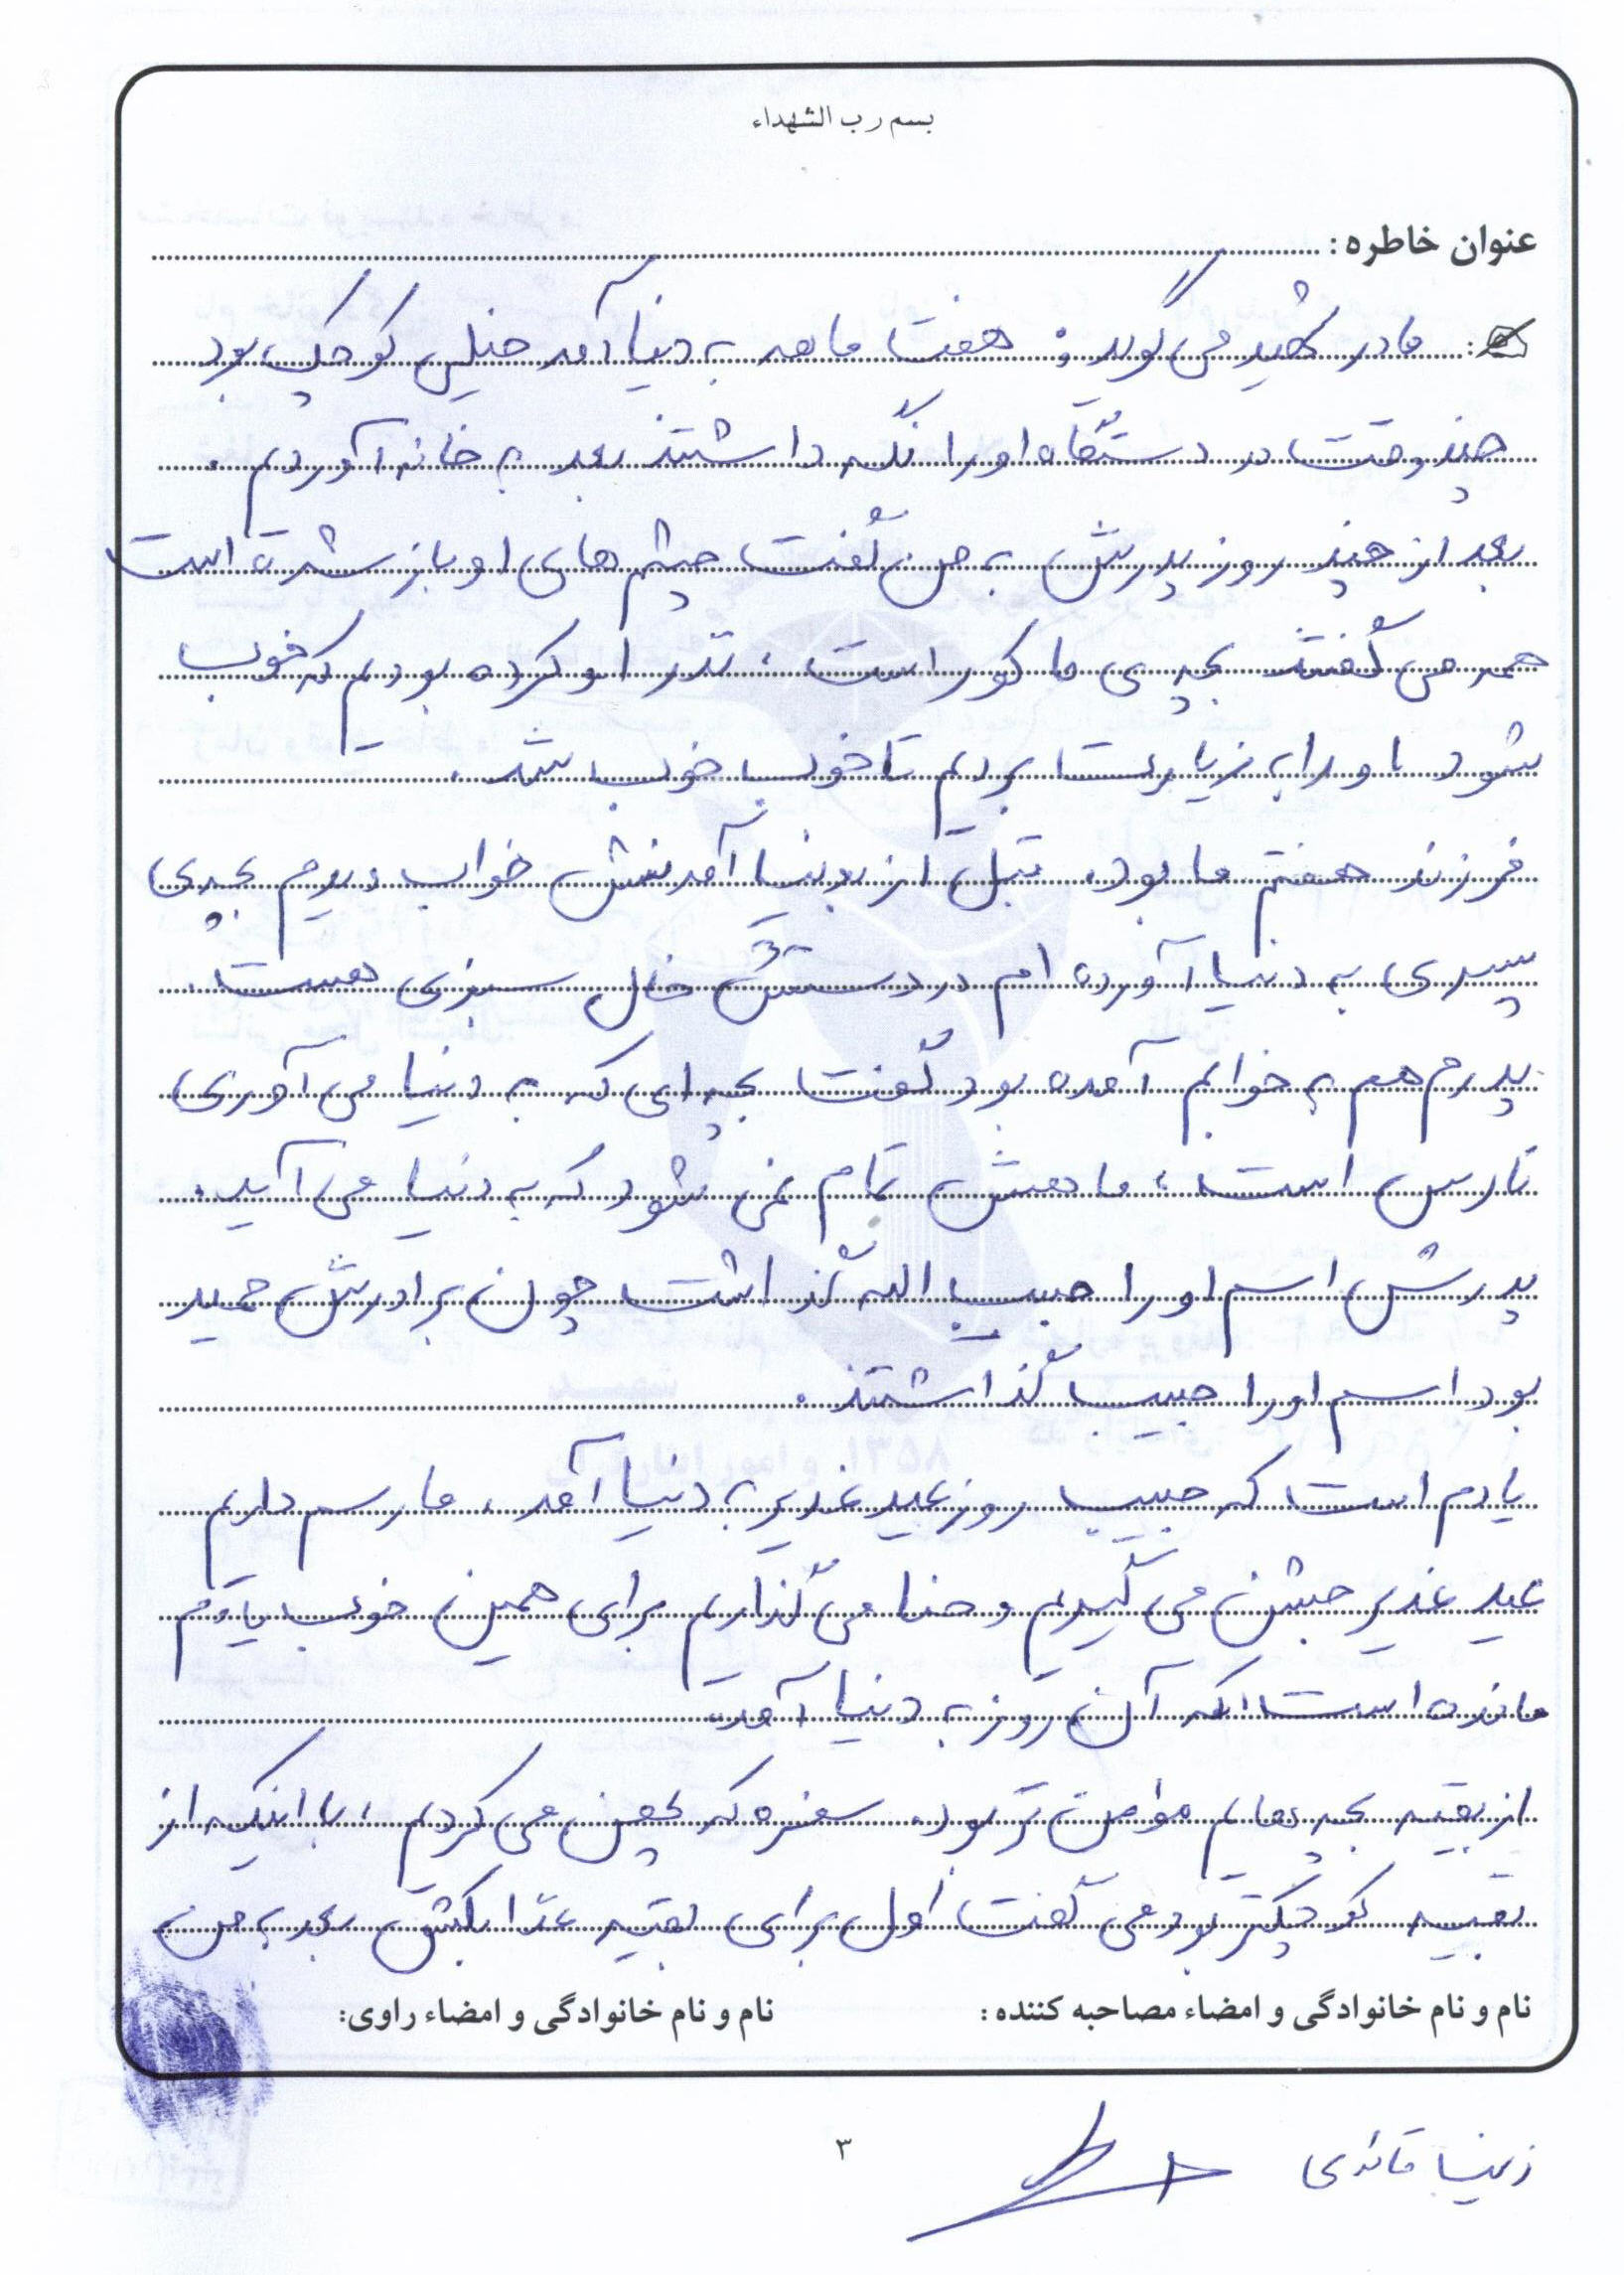 بسم رب الشهداء
عنوان خاطره:
مادر شهید می گوید: هفت ماهه به دنیا آمد خیلی کوچک بود
چند وقت در دستگاه او را نگه داشتند بعد به خانه آوردیم.
بعد از چند روز پدرش به من گفت چشم های او باز شده است
همه می گفتند بچه ی ما کور است، نذر او کرده بودیم که خوب
شود او را به زیارت بردیم تا خوب خوب شد.
فرزند هفتم ما بود. قبل از بدنیا آمدنش خواب دیدم بچه ی
پسری به دنیا آورده ام در دستش خال سبزی هست.
پدرم هم به خوابم آمده بود گفت بچه ای که به دنیا می آوری
نارس است، ماهش تمام نمی شود که به دنیا می آید.
پدرش اسم او را حبیب الله گذاشت چون برادرش حمید
بود اسم او را حبیب گذاشتند.
یادم است که حبیب روز عید غدیر به دنیا آمد، ما رسم داریم
عید غدیر جشن می گیریم و حنا می گذاریم برای همین خوب یادم
مانده است که آن روز به دنیا آمد.
از بقیه بچه هایم مؤمن تر بود. سفره که پهن می کردیم، با اینکه از
بقیه کوچکتر بود می گفت اول برای بقیه غذا بکش بعد به من
نام و نام خانوادگی و امضاء مصاحبه کننده: نام و نام خانوادگی و امضاء راوی:
زینب
۳